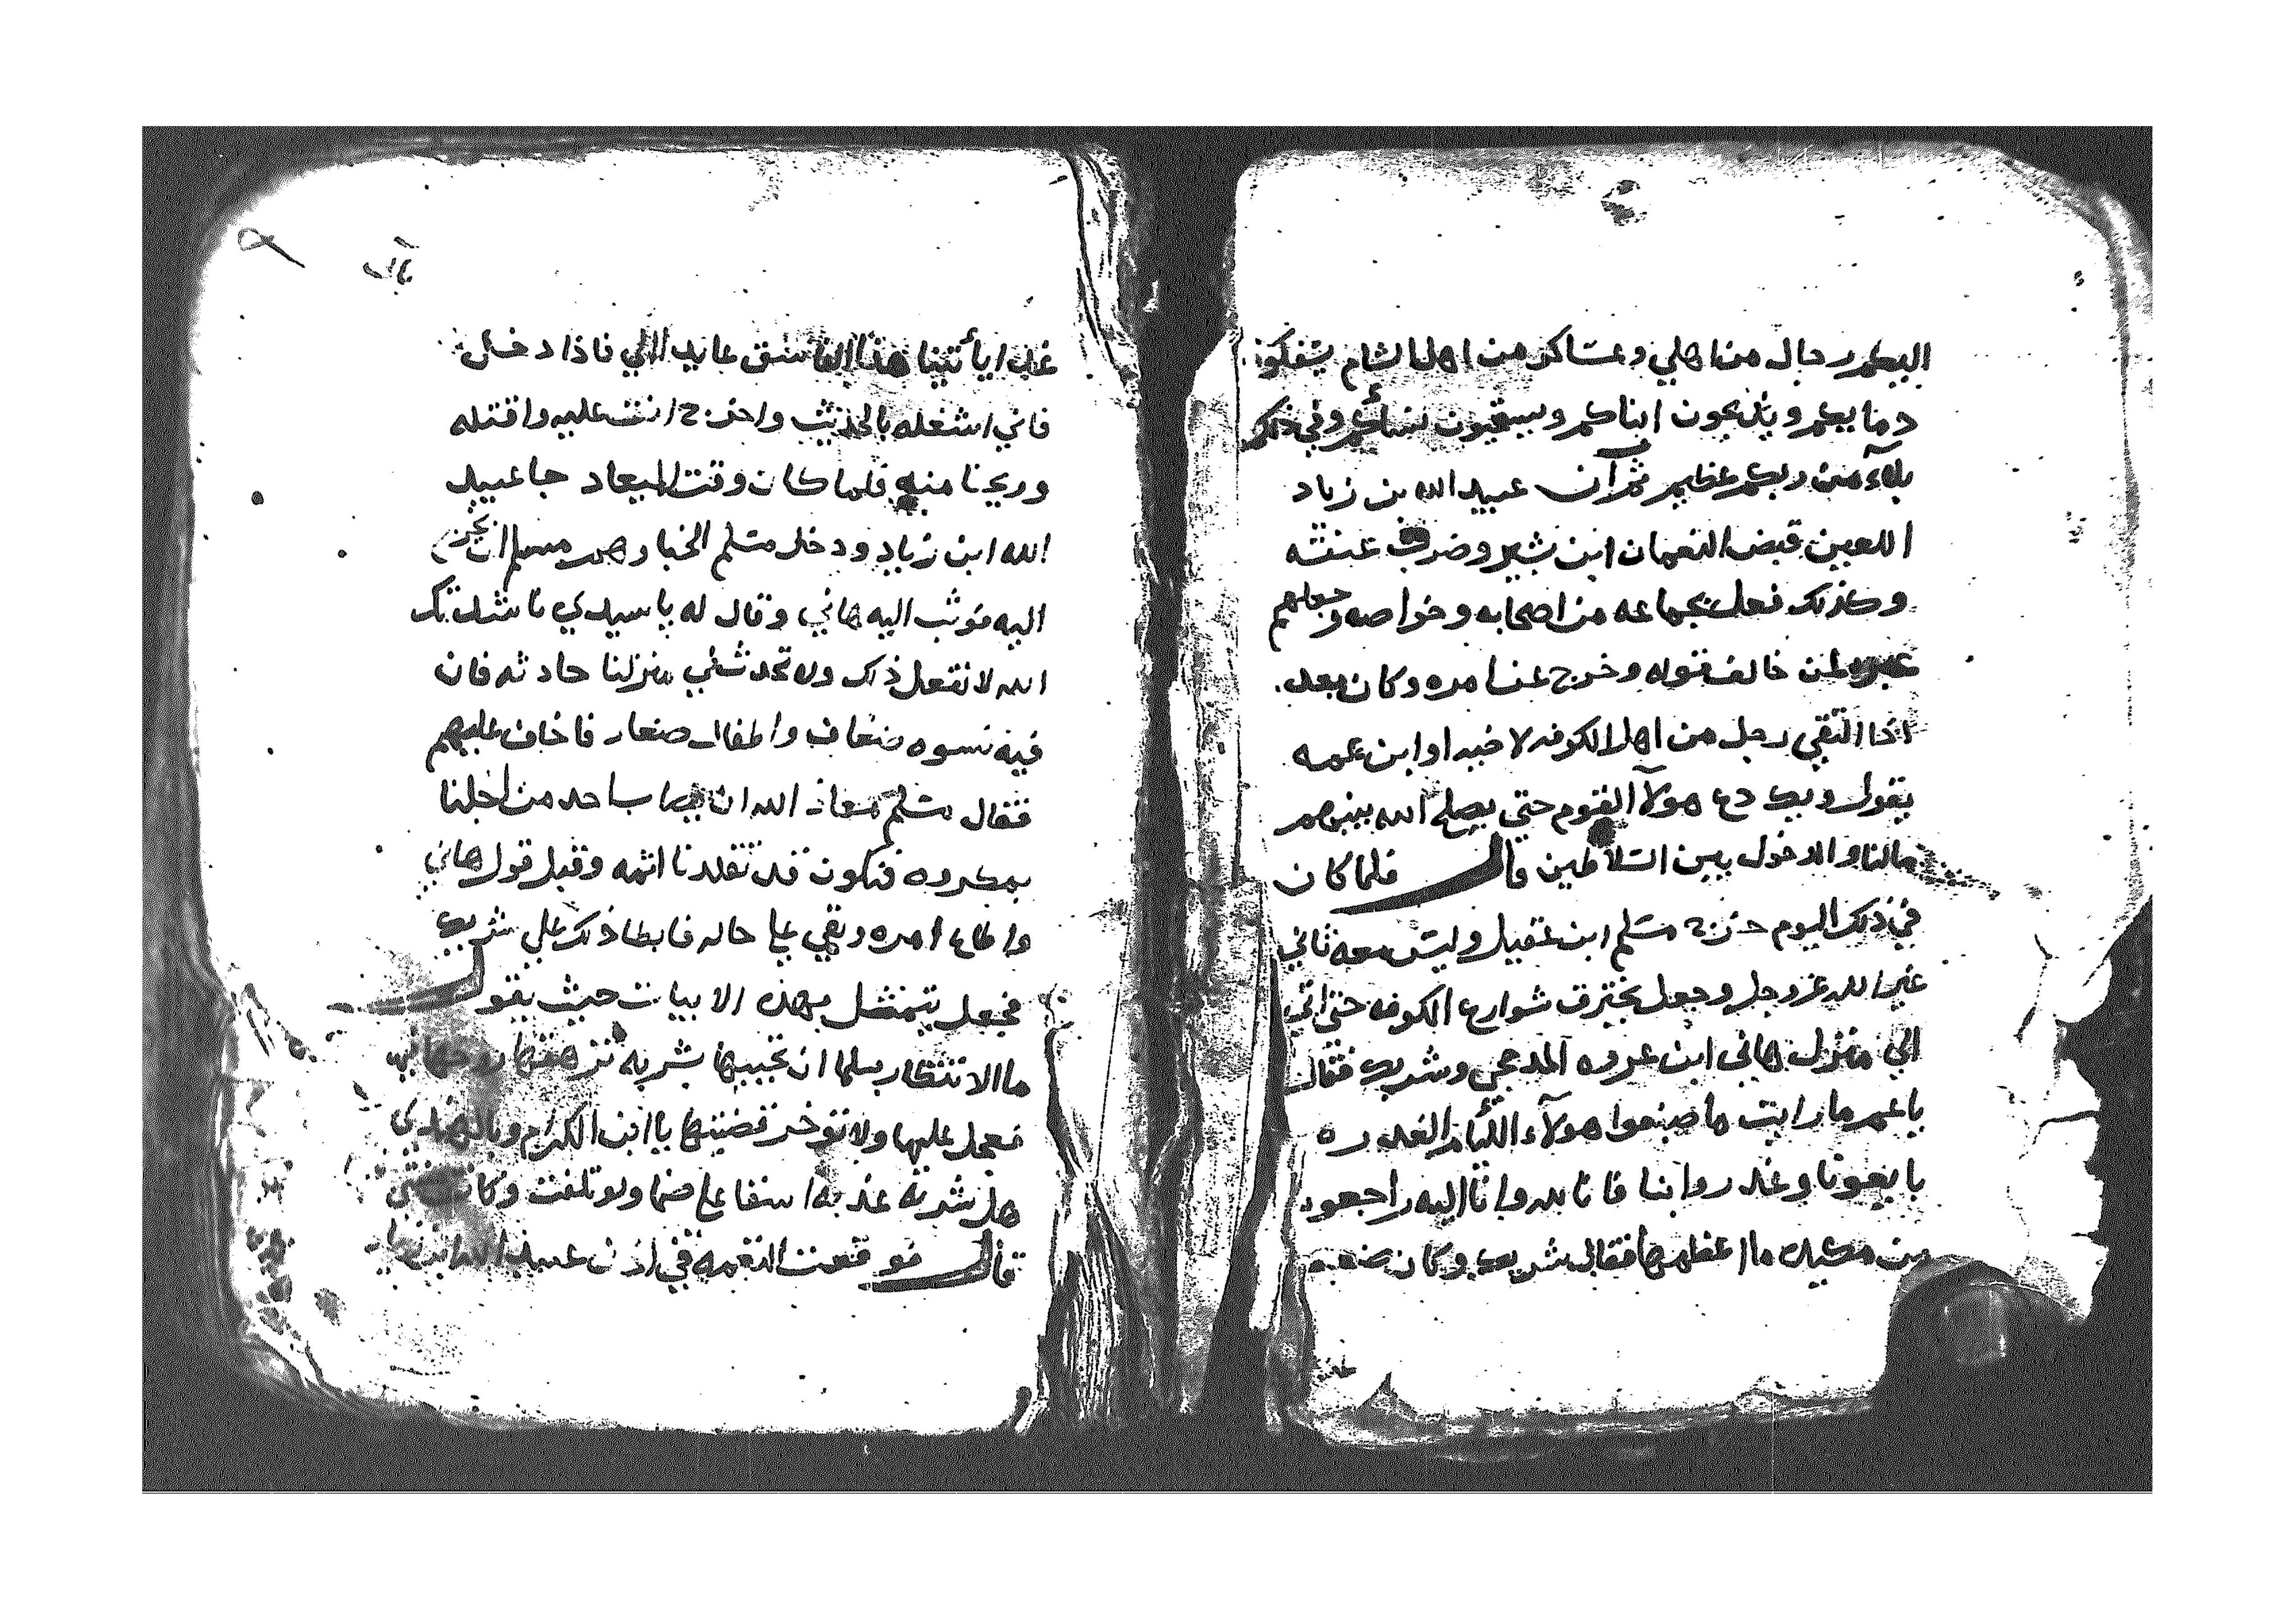 اليكم رجال من اهلي وعساكر من اهل الشام يسفكون
دمايكم ويذبحون ابناكم ويسبون نسائكم وفي ذلكم
بلآء من ربكم عظيم ثم آن عبيد الله بن زياد
اللعين قبض النعمان ابن بشير وضرب عنقه
وكذلك فعل بجماعه من اصحابه وخواصه وجعلهم
لمن خالف قوله وخرج عن امره وكان بعد
اذا التقي رجل من اهل الكوفه لاخيه او ابن عمه
يقول ويك دع هولآ القوم حتي يصلح الله بينهم
مالنا والدخول بين السلاطين قال فلما كان
في ذلك اليوم خرج مسلم ابن عقيل وليس معه ثاني
غير الله عز وجل وجعل يخترق شوارع الكوفه حتي اتي
الي منزل هاني ابن عروه المدحجي وشريك فقال
يا عم ما رايت ما صنعوا هولآء اللئام الغدره
بايعونا وغدروا بنا فانا لله وانا اليه راجعون
من مكيده ما اعظمها فقال شريك وكان ضعيف
غدا يأتينا هذا الفاسق عايد الي فاذا دخل
فاني اشغله بالحديث واخرج انت عليه واقتله
وريحنا منه فلما كان وقت الميعاد جا عبيد
الله ابن زياد ودخل مسلم الخبا وهم مسلم ان يخرج
اليه فوثب اليه هاني وقال له يا سيدي ناشدتك
الله لا تفعل ذلك ولا تحدث في منزلنا حادثه فان
فيه نسوه ضعاف واطفال صغار فاخاف عليهم
فقال مسلم معاذ الله ان يصاب احد من اجلنا
بمكروه فنكون قد تقلدنا اثمه وقبل قول هاني
واطاع امره وبقي علي حاله فابطا ذلك علي شريك
فجعل يتمثل بهذه الابيات حيث يقول
ما الانتظار بسلما ان تحييها بشربه
فعجل عليها ولا توخر قضيتها يا ابن الكرام
هل شربة عذبه اسقا علي ضما ولو تلفت وكان
قال فو قعت النغمه في اذن عبيد الله ابن زياد